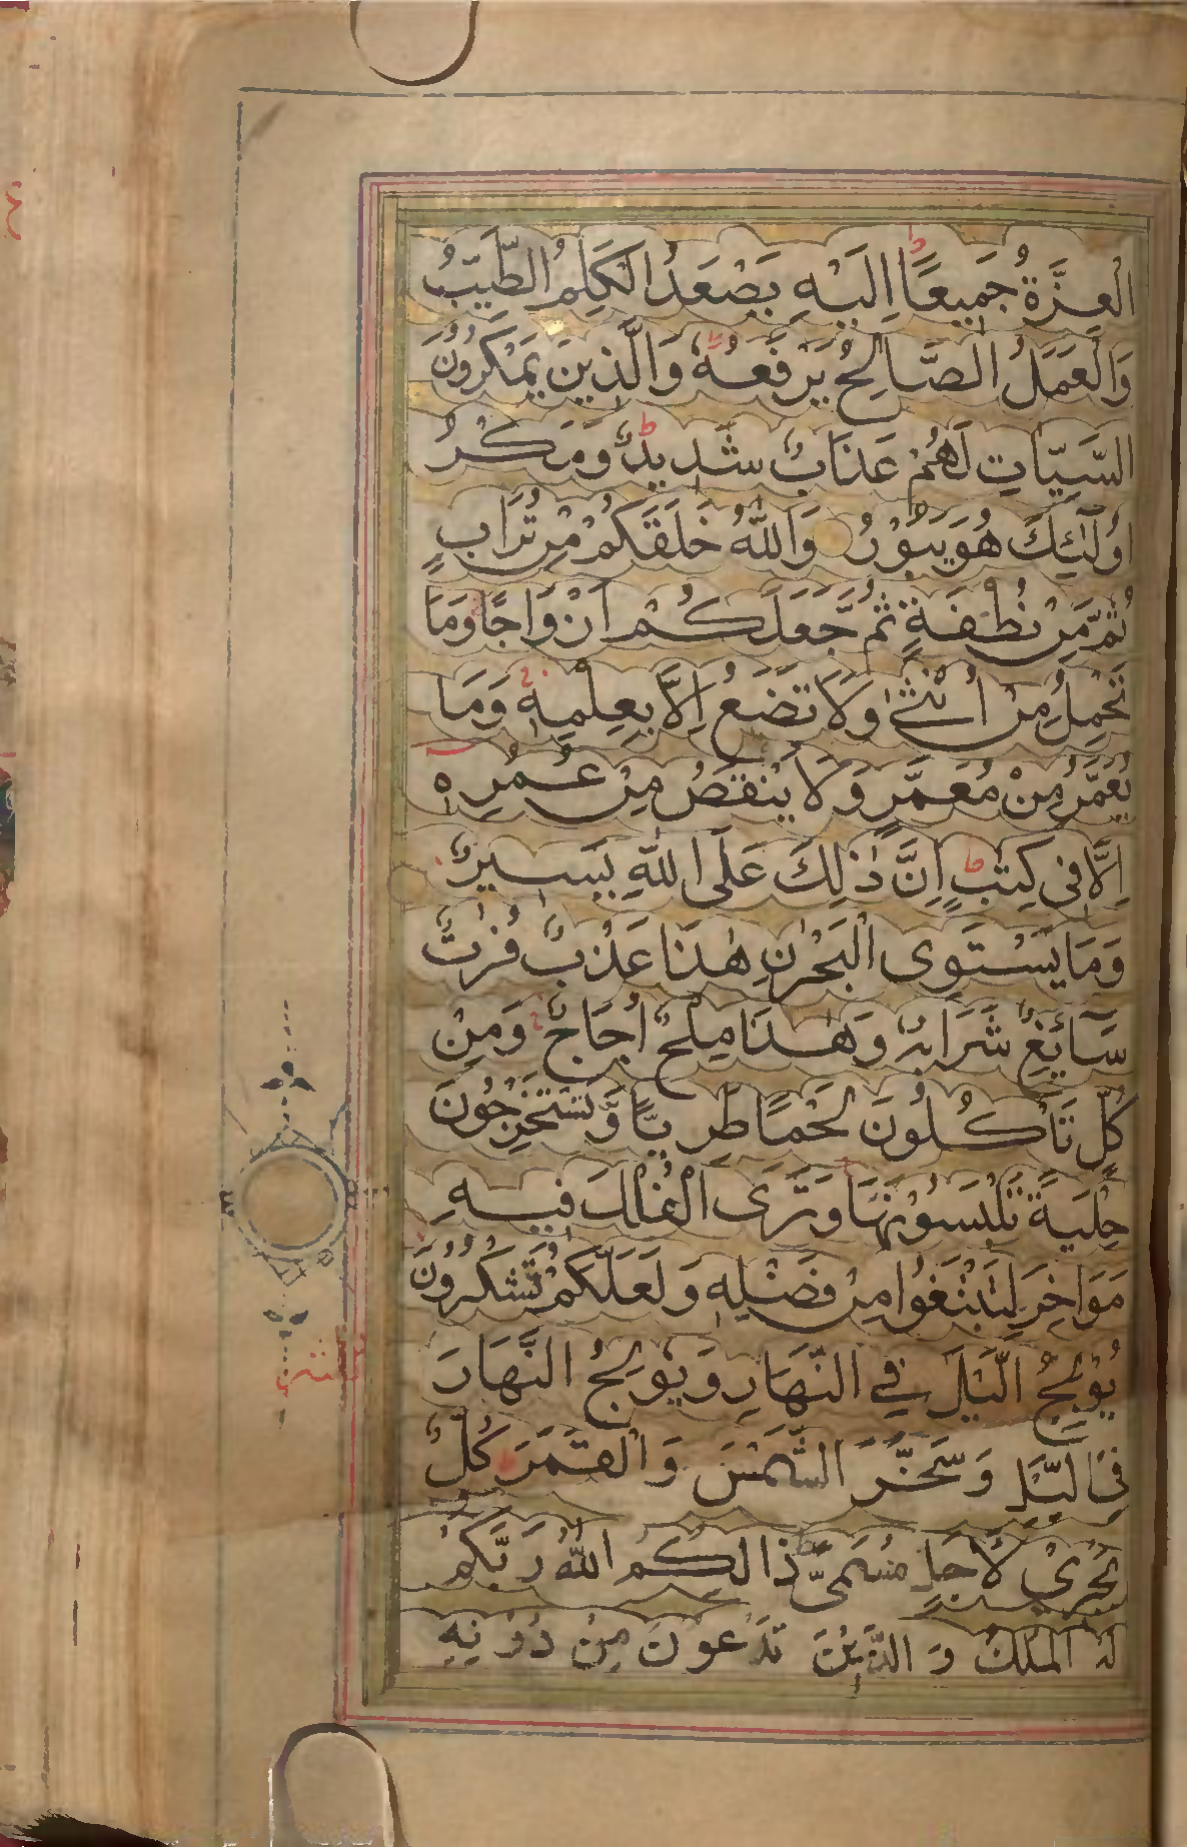 الْعِزَّةُ جَمِيعًا اِلَيْهِ يَصْعَدُ الْكَلِمُ الطَّيِّبُ
وَالْعَمَلُ الصَّالِحُ يَرْفَعُهُ وَالَّذِينَ يَمْكُرُونَ
السَّيِّاٰتِ لَهُمْ عَذَابٌ شَدِيدٌ وَمَكْرُ
اُولٰٓئِكَ هُوَ يَبُوْرُ وَاللّٰهُ خَلَقَكُمْ مِنْ تُرَابٍ
ثُمَّ مِنْ نُطْفَةٍ ثُمَّ جَعَلَكُمْ اَزْوَاجًا وَمَا
تَحْمِلُ مِنْ اُنْثٰى وَلَا تَضَعُ اِلَّا بِعِلْمِهٖ وَمَا
يُعَمَّرُ مِنْ مُعَمَّرٍ وَلَا يُنْقَصُ مِنْ عُمُرِهٖ
اِلَّا فِى كِتٰبٍ اِنَّ ذٰلِكَ عَلَى اللّٰهِ يَسِيرٌ
وَمَا يَسْتَوِى الْبَحْرٰنِ هٰذَا عَذْبٌ فُرٰتٌ
سَآئِغٌ شَرَابُهٗ وَهٰذَا مِلْحٌ اُجَاجٌ وَمِنْ
كُلٍّ تَأْكُلُونَ لَحْمًا طَرِيًّا وَّتَسْتَخْرِجُونَ
حِلْيَةً تَلْبَسُوْنَهَا وَتَرَى الْفُلْكَ فِيهِ
مَوَاخِرَ لِتَبْتَغُوا مِنْ فَضْلِهٖ وَلَعَلَّكُمْ تَشْكُرُونَ
يُوْلِجُ الَّيْلَ فِي النَّهَارِ وَيُوْلِجُ النَّهَارَ
فِى الَّيْلِ وَسَخَّرَ الشَّمْسَ وَالْقَمَرَ كُلٌّ
يَجْرِيْ لِاَجَلٍ مُسَمًّى ذَالِكُمُ اللّٰهُ رَبُّكُمْ
لَهُ الْمُلْكُ وَ الَّذِيْنَ تَدْعُونَ مِنْ دُوْنِهٖ